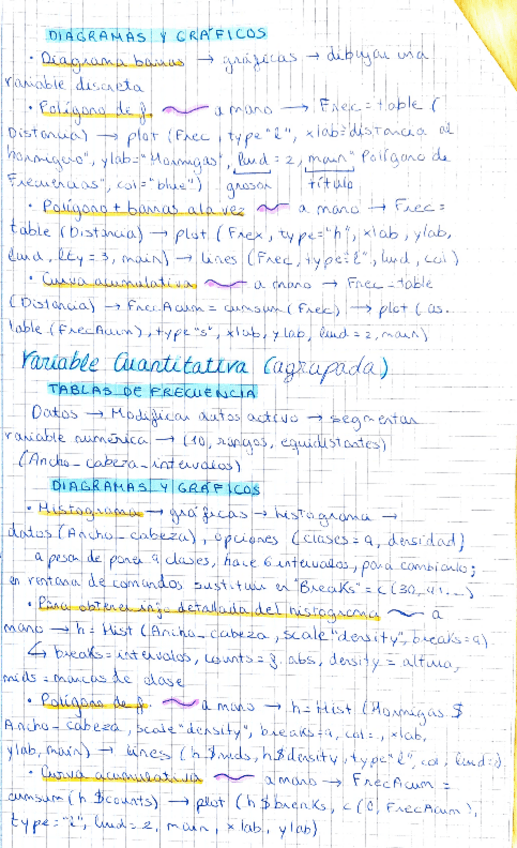 DIAGRAMAS Y GRÁFICOS
· Diagrama barras → gráficas → dibujar una
variable discreta
· Polígono de f. a mano → Frec = table (
Distancia) → plot (Frec, type="l", xlab="distancia al
hormiguero", ylab="Hormigas", lwd=2, main="Polígono de
Frecuencias", col="blue")
grosor título
· Polígono + barras a la vez a mano → Frec =
table (Distancia) → plot (Frec, type="h", xlab, ylab,
lwd, lty=3, main) → lines (Frec, type="l", lwd, col)
· Curva acumulativa a mano → Frec = table
(Distancia) → FrecAcum = cumsum (Frec) → plot (as.
table (FrecAcum), type="s", xlab, ylab, lwd=2, main)
Variable Cuantitativa (agrupada)
TABLAS DE FRECUENCIA
Datos → Modificar datos activo → segmentar
variable numérica → (10, rangos, equidistantes)
(Ancho_cabeza_intervalos)
DIAGRAMAS Y GRÁFICOS
· Histograma → gráficas → histograma →
datos (Ancho_cabeza), opciones (clases=9, densidad)
a pesar de poner 9 clases, hace 6 intervalos, para cambiarlo;
en ventana de comandos sustituir en "Breaks"=c(30, 41...)
· Para obtener info detallada del histograma a
mano → h = Hist (Ancho_cabeza, scale "density", breaks=9)
↳ breaks = intervalos, counts = f. abs, density = altura,
mids = marcas de clase
· Polígono de f. a mano → h = Hist (Hormigas $
Ancho_cabeza, scale "density", breaks=9, col=, xlab,
ylab, main) → lines (h$mids, h$density, type="l", col, lwd=)
· Curva acumulativa a mano → FrecAcum =
cumsum (h$counts) → plot (h$breaks, c(0, FrecAcum),
type="l", lwd=2, main, xlab, ylab)